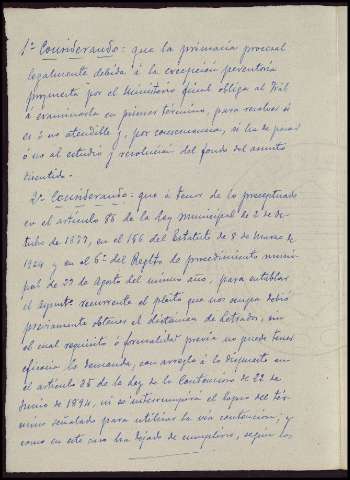 1º Considerando: que la primacia procesal
legalmente debida á la excepción perentoria
propuesta por el Ministerio fiscal obliga al Tribl
á examinarla en primer término, para resolver si
es ó no atendible y, por consecuencia, si ha de pasar
ó no al estudio y resolución del fondo del asunto
discutido.
2º Considerando: que á tenor de lo preceptuado
en el artículo 86 de la Ley Municipal de 2 de Oc-
tubre de 1877, en el 156 del Estatuto de 8 de Marzo de
1924 y en el 6º del Reglto de procedimiento muni-
pal de 23 de Agosto del mismo año, para entablar
el Aynto recurrente el pleito que nos ocupa debió
previamente obtener el dictamen de Letrados, sin
el cual requisito ó formalidad previa no puede tener
eficacia la demanda, con arreglo á lo dispuesto en
el artículo 35 de la Ley de lo Contencioso de 22 de
Junio de 1894, ni se interrumpirá el lapso del tér-
mino señalado para utilizar la via contenciosa; y
como en este caso ha dejado de cumplirse, según los